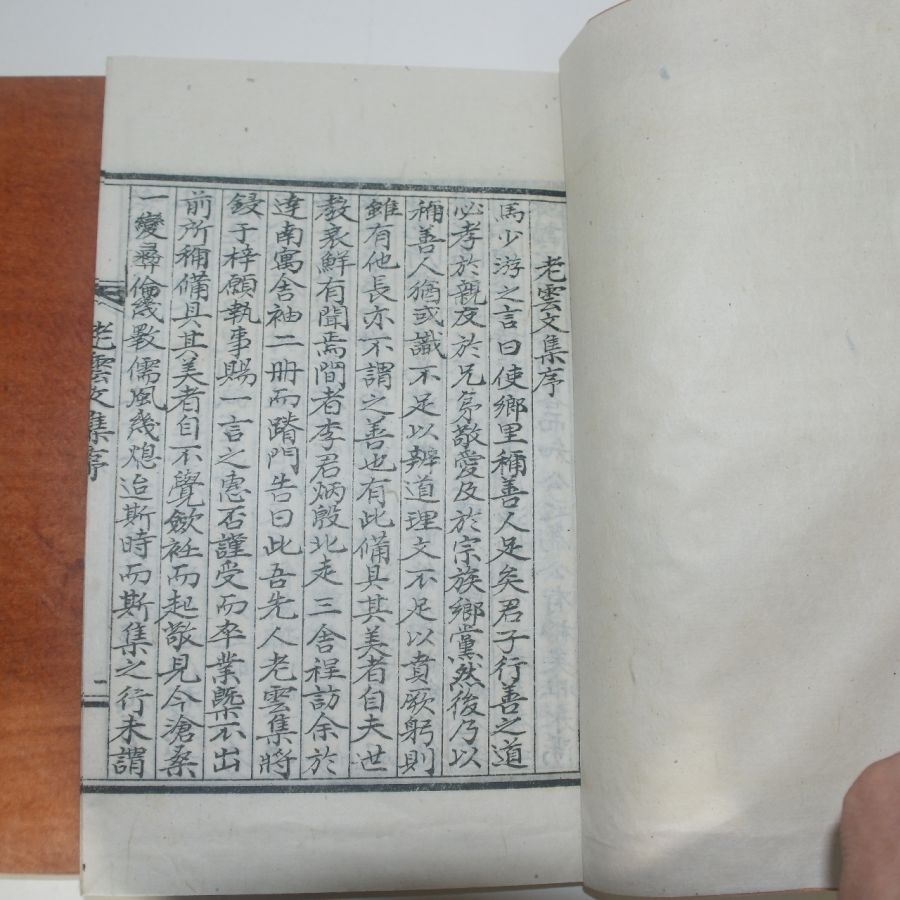 老雲文集序
馬少游之言曰使鄕里稱善人足矣君子行善之道
必孝於親友於兄弟敬愛及於宗族鄕黨然後乃以
稱善人猶或識不足以辨道理文不足以賁厥躬則
雖有他長亦不謂之善也有此備具其美者自夫世
敎衰鮮有聞焉間者李君炳殷北走三舍程訪余於
達南寓舍袖二冊而踏門告曰此吾先人老雲集將
鋟于梓願執事賜一言之寵否謹受而卒業槩不出
前所稱備具其美者自不覺斂衽而起敬見今滄桑
一變彝倫幾斁儒風幾熄迨斯時而斯集之行未謂
老雲文集序
一